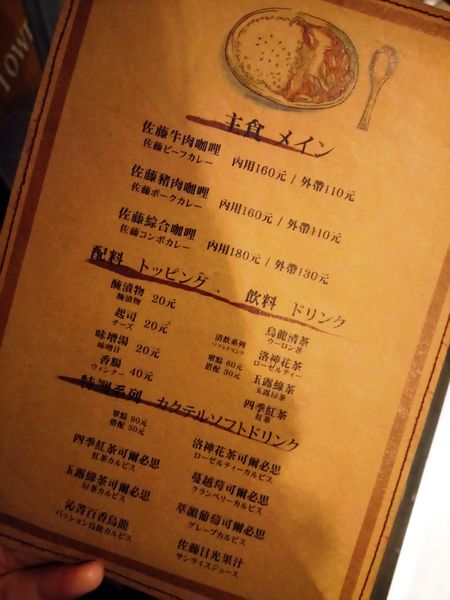 Town
主食 メイン
佐藤牛肉咖哩 內用160元 / 外帶110元
佐藤ビーフカレー
佐藤豬肉咖哩 內用160元 / 外帶110元
佐藤ポークカレー
佐藤綜合咖哩 內用180元 / 外帶130元
佐藤コンボカレー
配料 トッピング
醃漬物 20元
醃漬物
起司 20元
チーズ
味增湯 20元
味増汁
香腸 40元
ウィンナー
飲料 ドリンク
清飲系列
ソフトドリンク
單點 60元
搭配 30元
烏龍清茶
ウーロン茶
洛神花茶
ローゼルティー
玉露綠茶
玉露緑茶
四季紅茶
紅茶
特調系列 カクテルソフトドリンク
單點 90元
搭配 50元
四季紅茶可爾必思
紅茶カルピス
玉露綠茶可爾必思
緑茶カルピス
沁菁百香烏龍
パッション烏龍カルピス
洛神花茶可爾必思
ローゼルティーカルピス
蔓越莓可爾必思
クランベリーカルピス
葡萄可爾必思
グレープカルピス
佐藤日光果汁
サンライズジュース